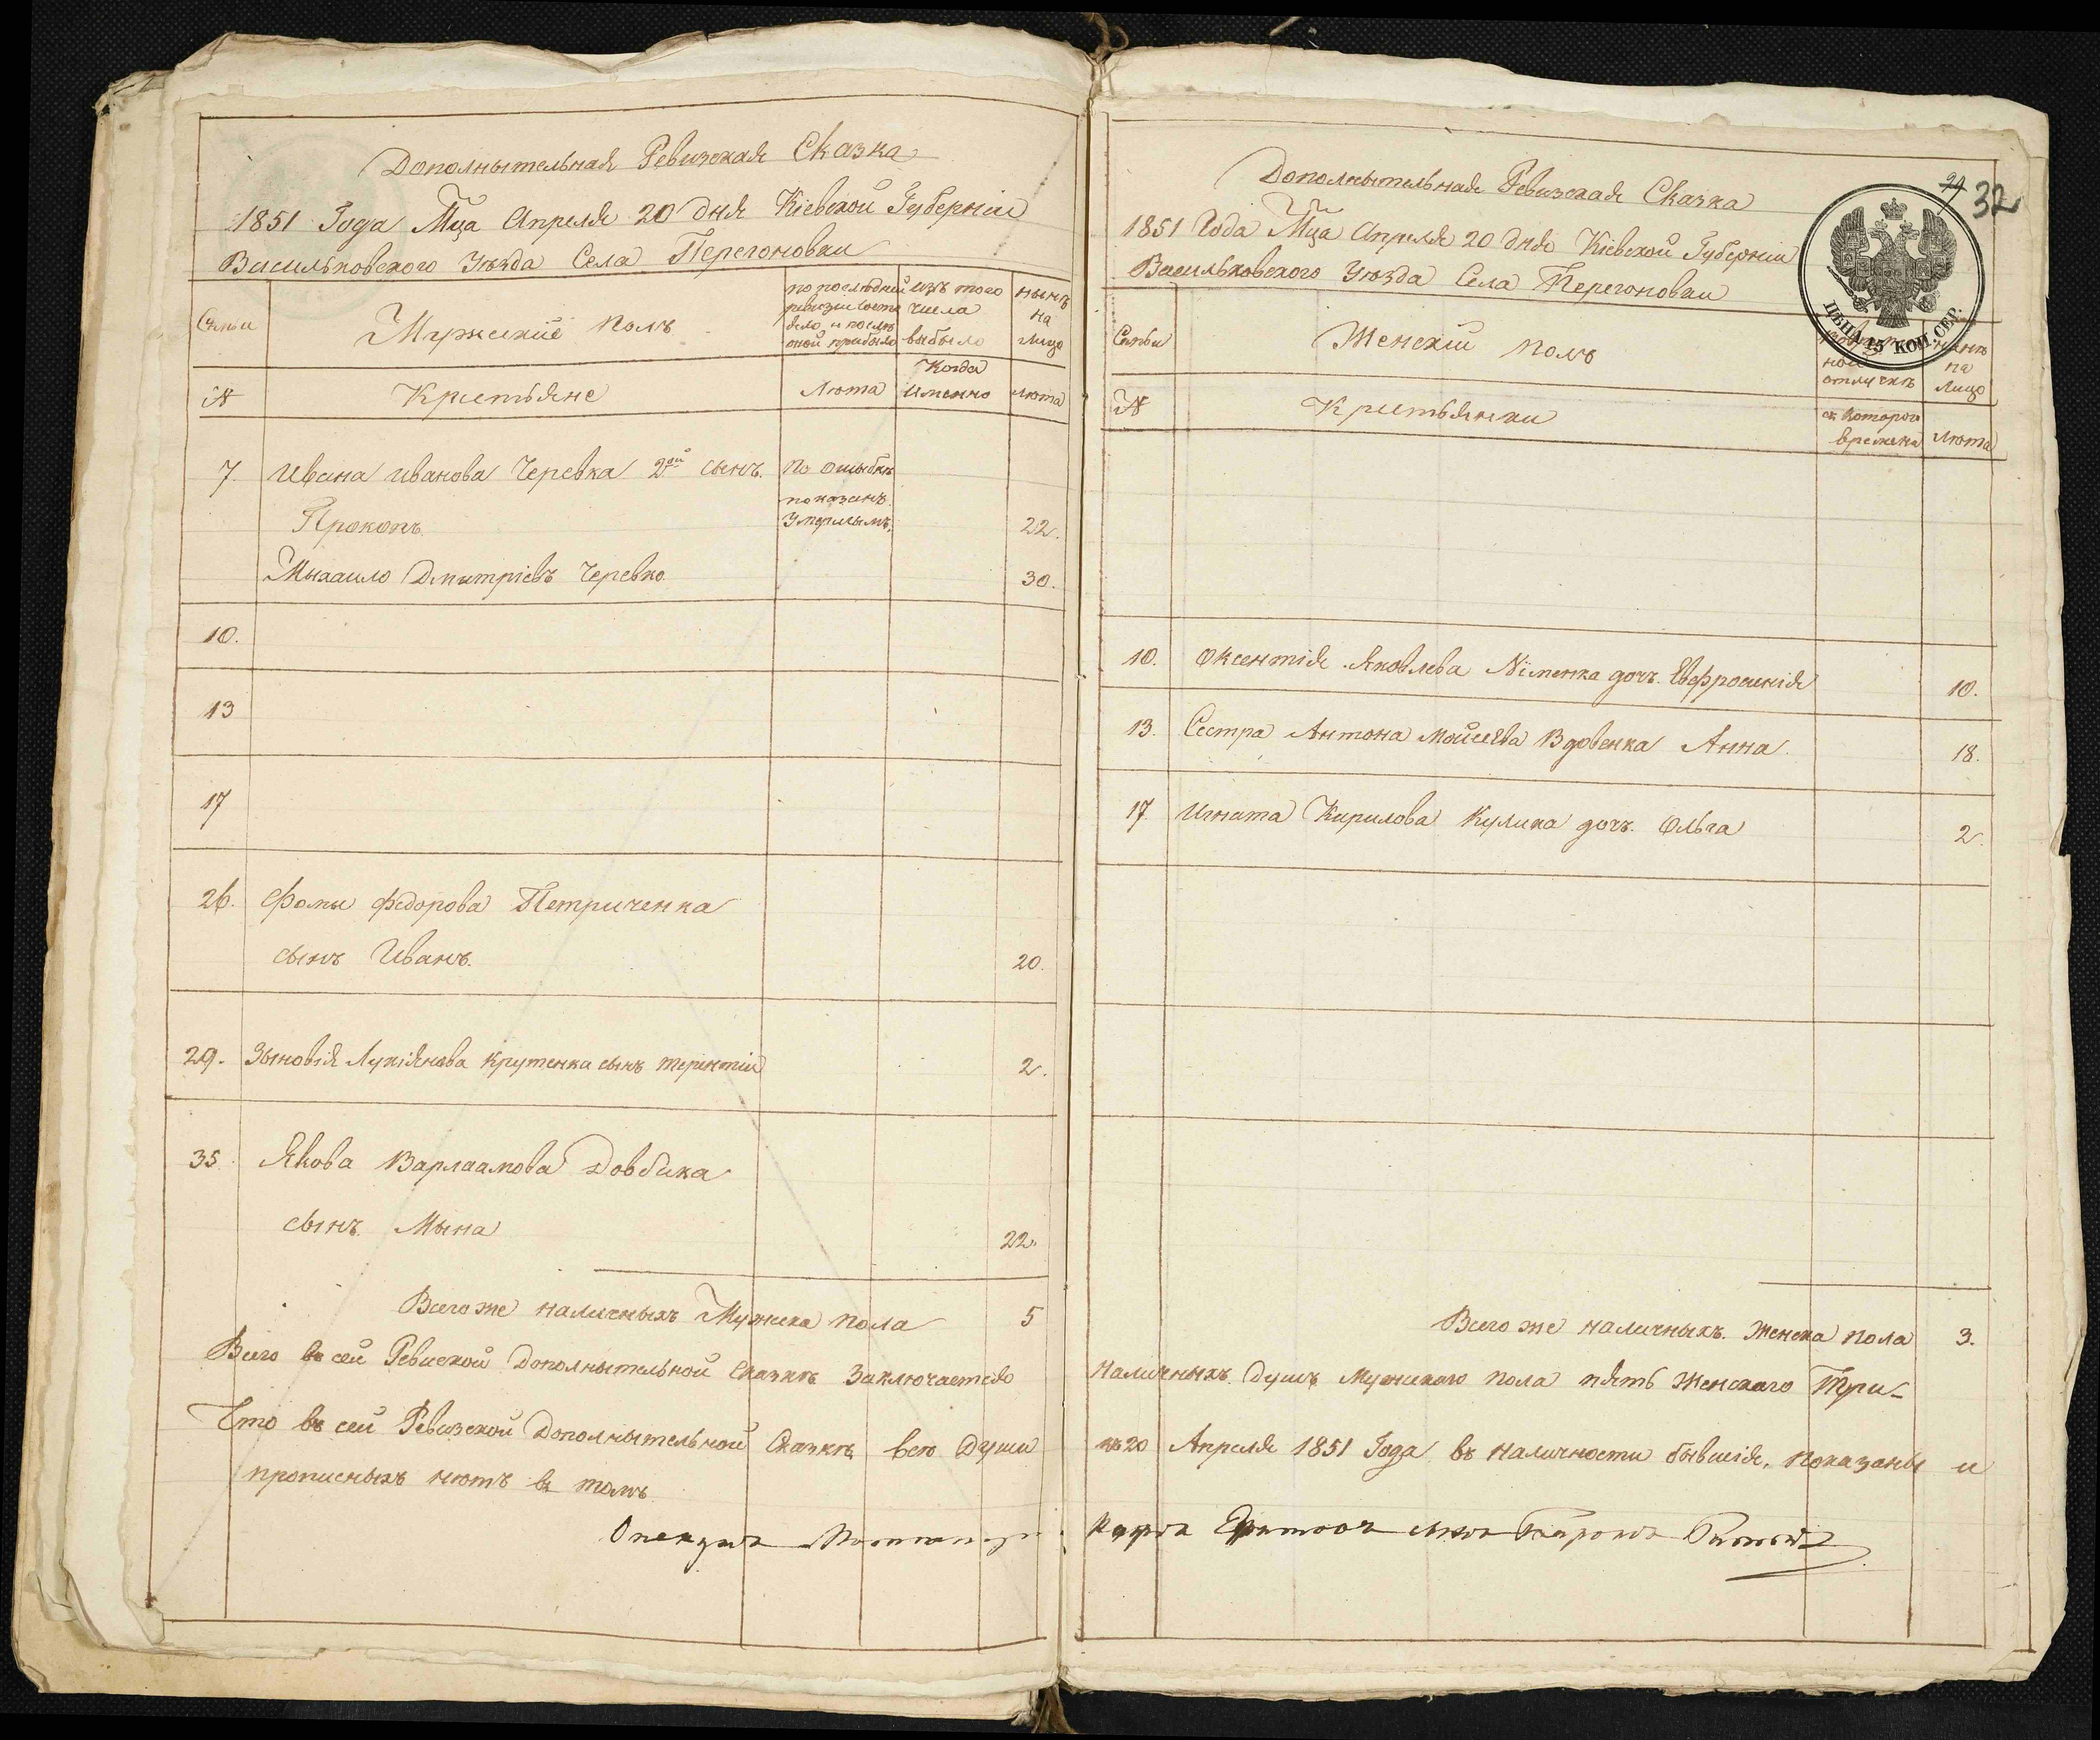 Дополнытельная Ревизская Сказка
1851 Года Мца Апреля 20 дня Кіевской Губерніи
Васильковского Уезда Села Перегоновки
Семьи
Мужескій полъ
по последней
ревизіи состо
яло и после
оной прибыло
изъ того
числа
выбыло
ныне
на
лицо
№
Крестьяне
Лета
Когда
именно
лета
7. Ивана Иванова Черевка 2ой сынъ. По ошыбке
показанъ
Прокопъ. умерлымъ. 22.
Михаило Дмитріевъ Черевко 30.
10.
13
17
26. Фомы Федорова Петриченка
сынъ Иванъ. 20.
29. Зыновія Лукіянова Крутенка сынъ Терентій 2.
35. Якова Варлаамова Довбика
сынъ Мына 22.
Всего же наличныхъ Мужеска пола 5
Всего въ сей Ревиской Дополнытельной Сказке Заключается
Что въ сей Ревизской Дополнытельной Сказке все Души
прописныхъ нетъ въ томъ
Опекунъ
Дополнытельная Ревизская Сказка
29 32
1851 Года Мца Апреля 20 дня Кіевской Губерніи
Васильковского Уезда Села Перегоновки
ЦѢНА 15 КОП. СЕР.
Семьи
Женскій полъ
отлучке
ныне
на
лицо
№
Крестьянки
съ которого
времени
лета
10. Оксентія Яковлева Німенка дочъ. Евфросинія 10.
13. Сестра Антона Мойсеева Вдовенка Анна 18.
17 Игната Кирилова Кулика дочъ. Ольга 2.
Всего же наличныхъ. Женска пола 3.
Наличныхъ Душъ Мужескаго пола пять Женскаго Три
къ 20 Апреля 1851 Года въ наличности бывшія, показаны и